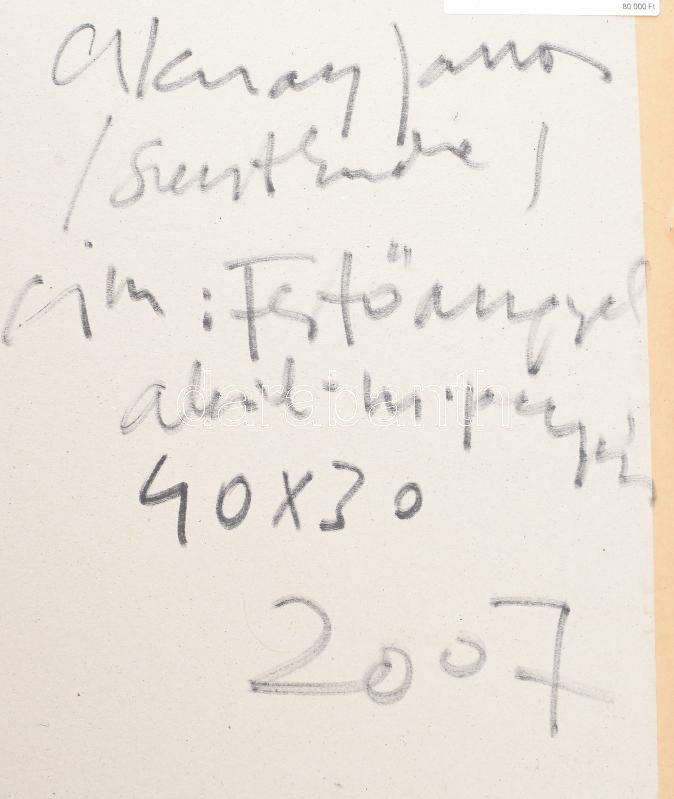 80 000 Ft
Aknay János
/Szentendre/
cím: Festőangyal
akril
40x30
2007
darabanth